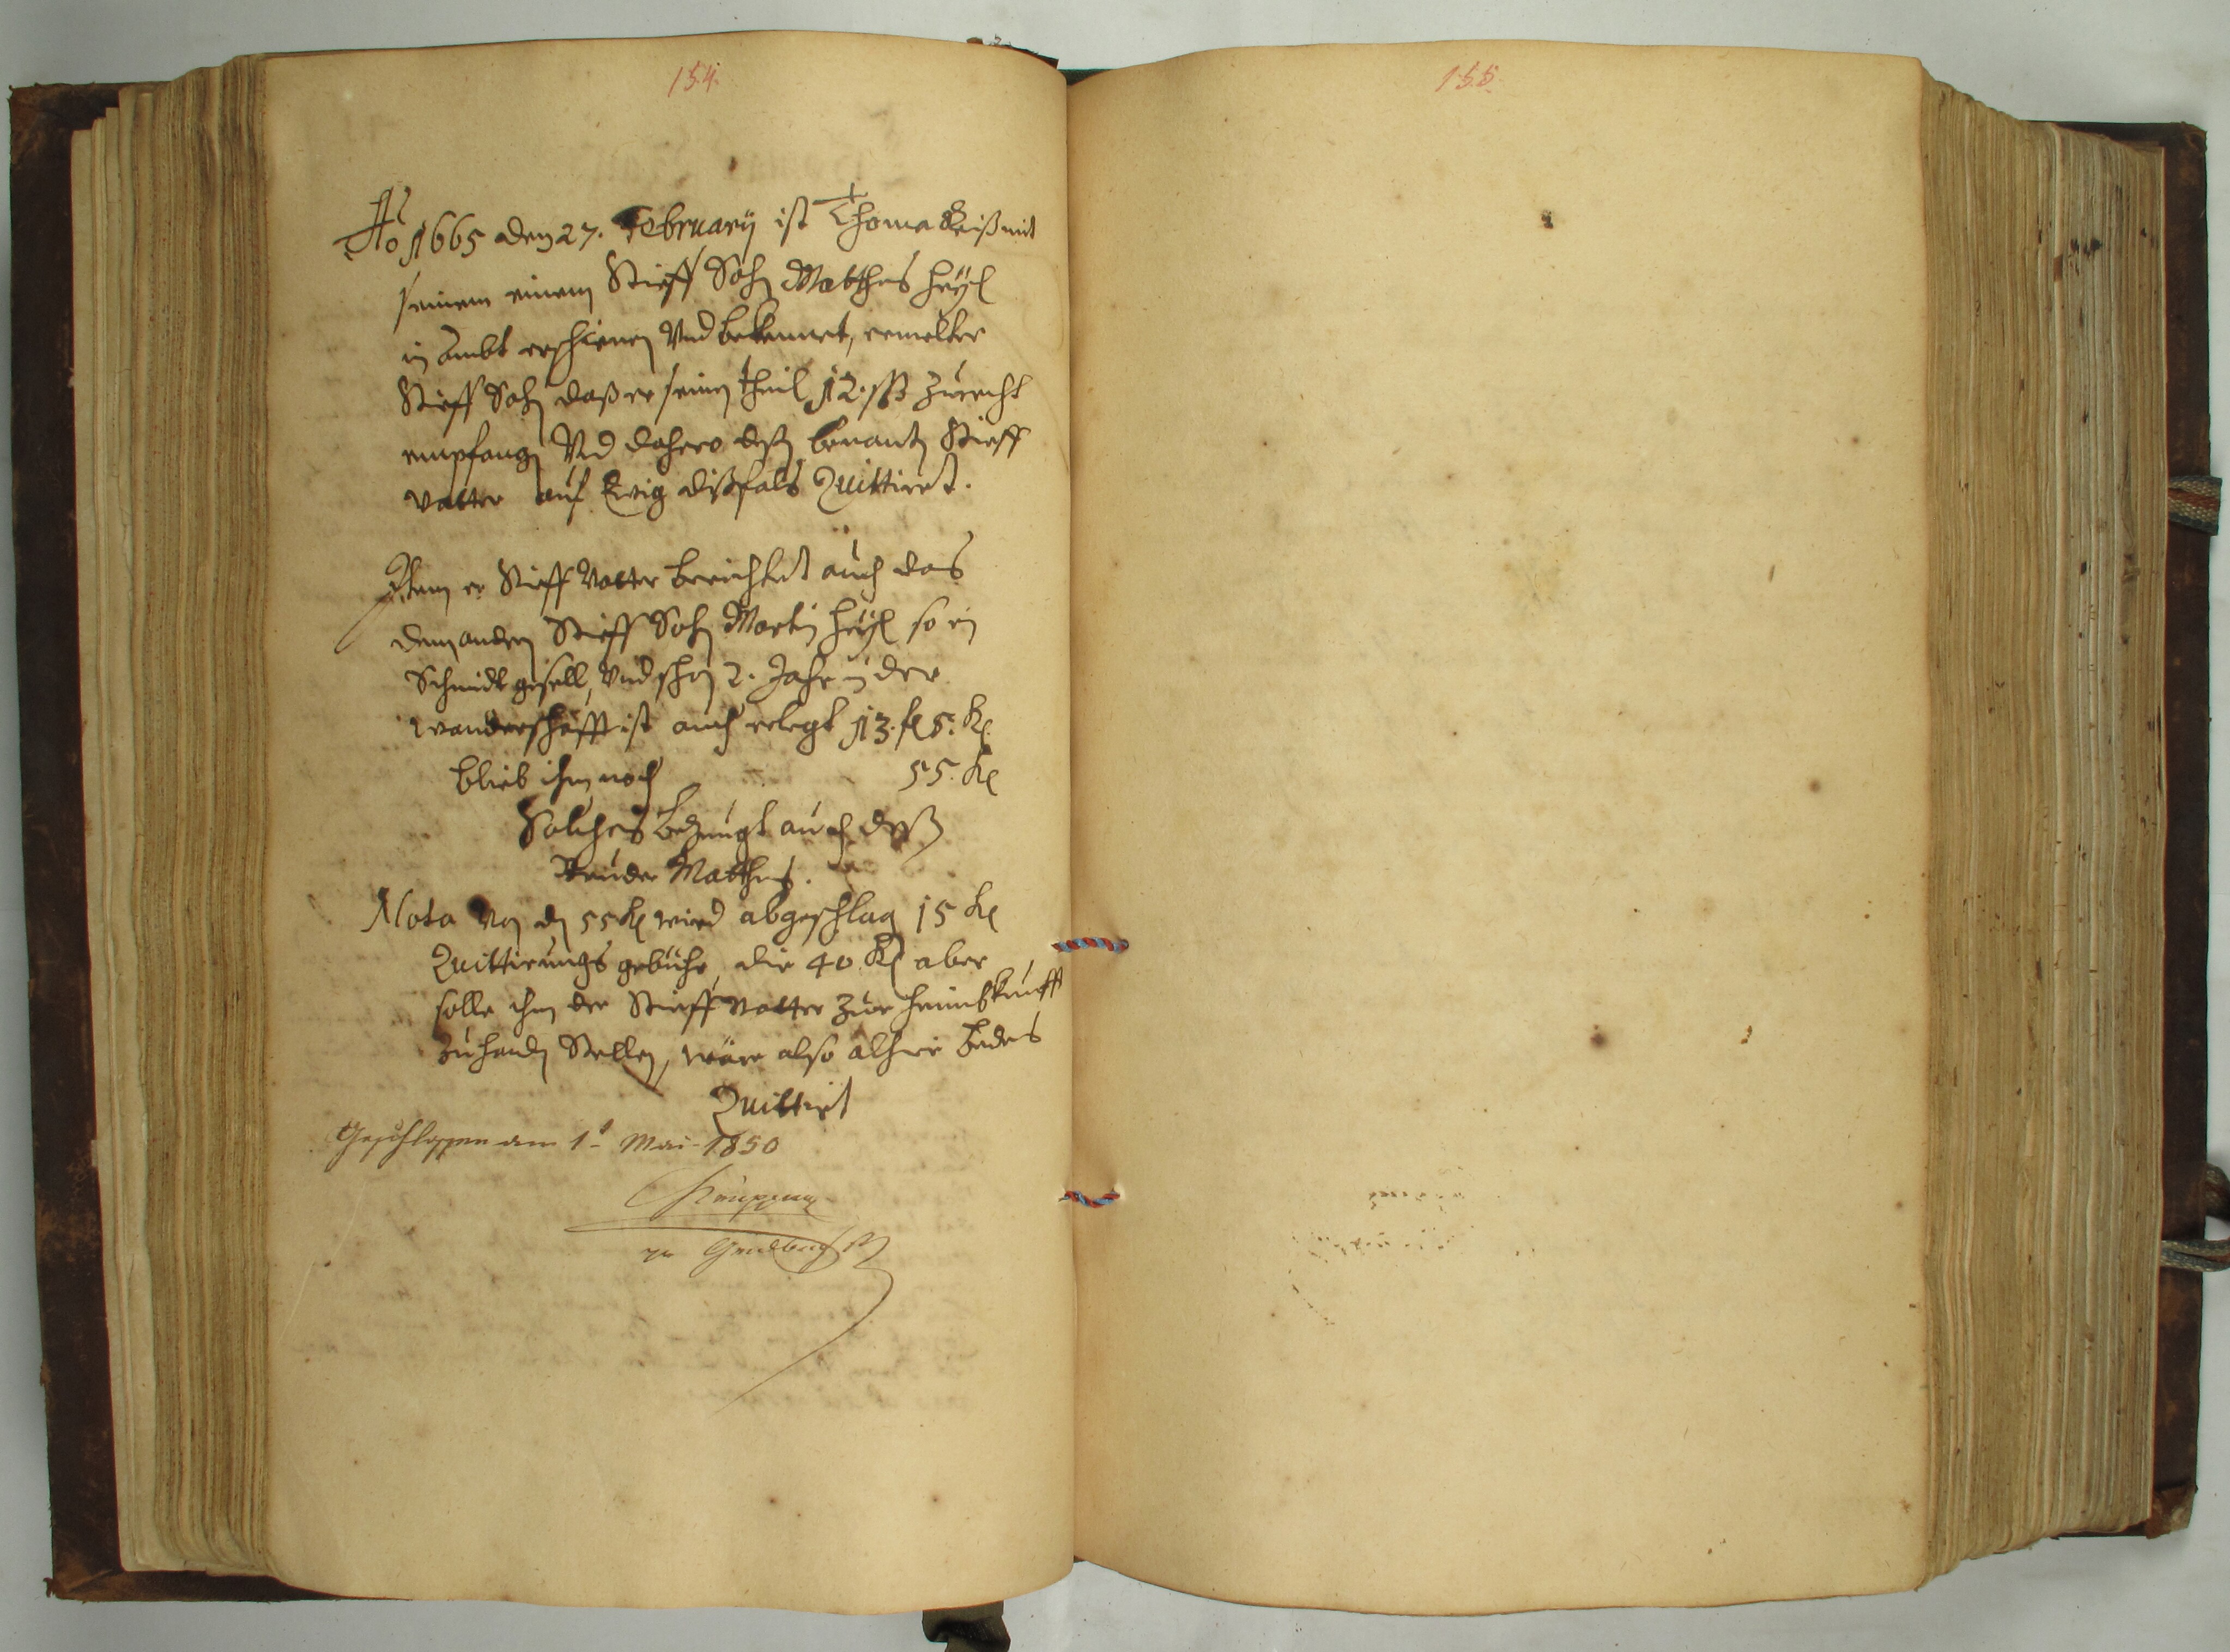 154.
155.
Ao 1665 den 27. February ist Thoma Reiß mit
seinem einem Stieff Sohn Matthes Heyl
in Ambt erschienen Vnd bekennet, ermelter
Stieff Sohn daß er seinen theil 12. ßß zu recht
empfangen Vnd dahero deßen benanten Stieff
vatter auf Ewig dißfals Quittiret.
Item er Stieff Vatter berichtet auch das
dem andern Stieff Sohn Martin Heyl so ein
Schmidt gesell, Vnd schon 2. Jahr in der
wanderschafft ist auch erlegt 13. fl 5. Kr.
blieb ihm noch 55. Kr
Solches bezeugt auch deßen
Bruder Matthes.
Nota Von den 55 Kr wird abgeschlagen 15 Kr
Quittirungs gebühr, die 40. Kr aber
solle ihm der Stieff Vatter zur heimbkunfft
zu handen Stellen, wäre also alhier beedes
Quittirt
Geschlossen am 1t Mai 1850